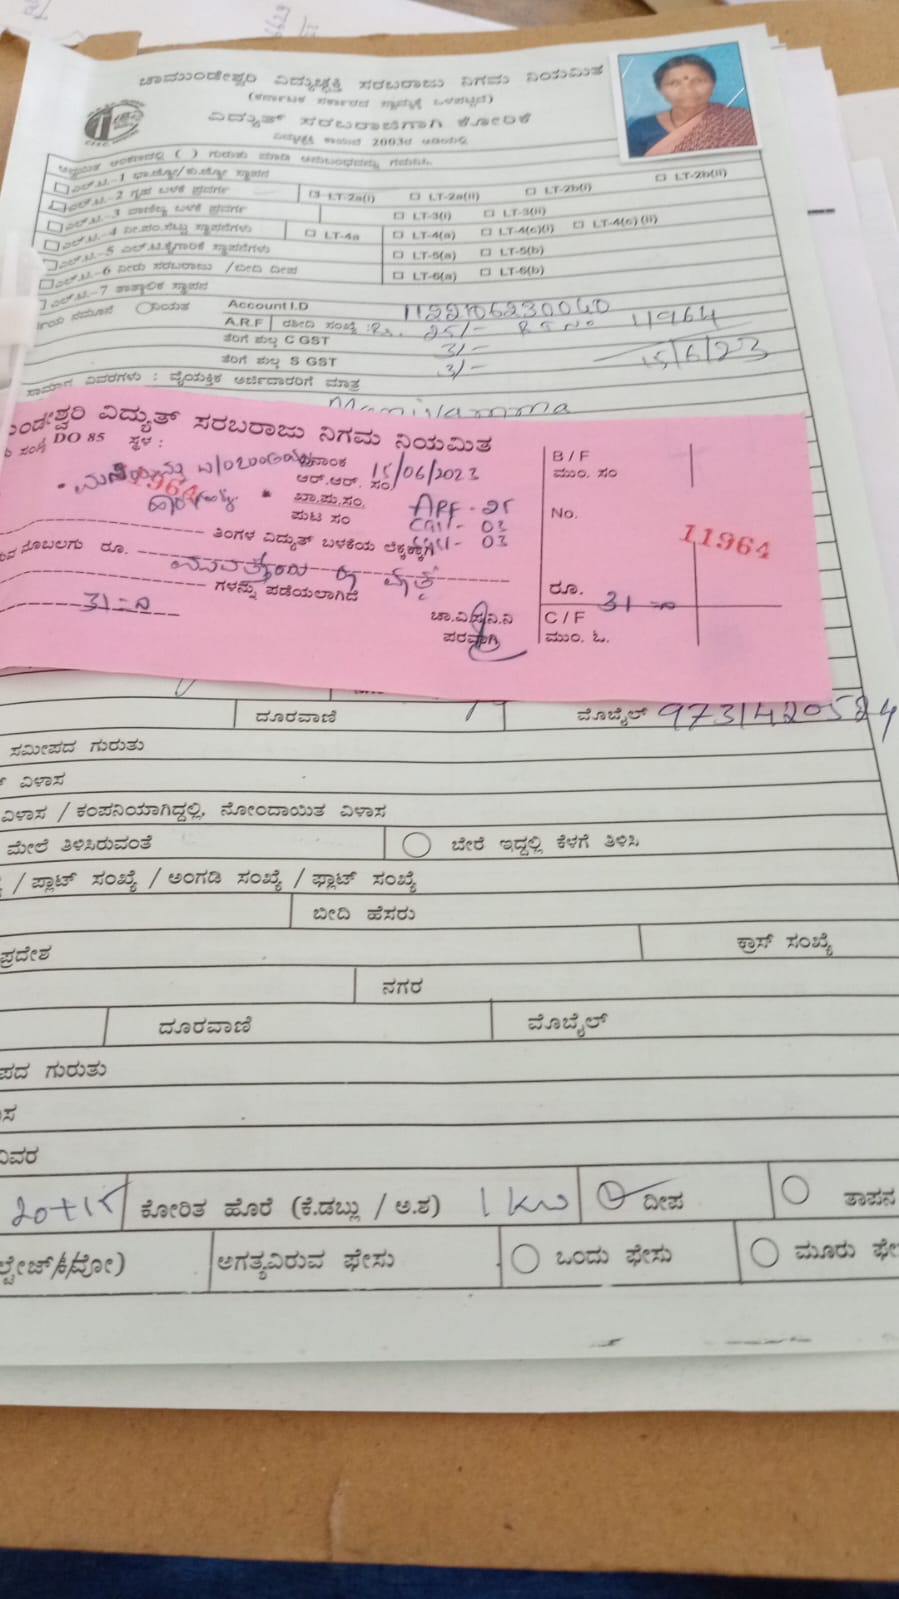 ಚಾಮುಂಡೇಶ್ವರಿ ವಿದ್ಯುಚ್ಛಕ್ತಿ ಸರಬರಾಜು ನಿಗಮ ನಿಯಮಿತ
(ಕರ್ನಾಟಕ ಸರ್ಕಾರದ ಸ್ವಾಮ್ಯಕ್ಕೆ ಒಳಪಟ್ಟಿದೆ)
ವಿದ್ಯುತ್ ಸರಬರಾಜಿಗಾಗಿ ಕೋರಿಕೆ
ವಿದ್ಯುಚ್ಛಕ್ತಿ ಕಾಯಿದೆ 2003ರ ಅಡಿಯಲ್ಲಿ
ಎಲ್.ಟಿ.-1
ಎಲ್.ಟಿ.-2 ಗೃಹ ಬಳಕೆ ಪ್ರವರ್ಗ LT-2a(i) LT-2a(ii) LT-2b(i) LT-2b(ii)
ಎಲ್.ಟಿ.-3 ವಾಣಿಜ್ಯ ಬಳಕೆ ಪ್ರವರ್ಗ LT-3(i) LT-3(ii)
ಎಲ್.ಟಿ.-4 ನೀ.ಪಂ.ಸೆಟ್ಟು ಸ್ಥಾಪನೆಗಳು LT-4a LT-4(a) LT-4(c)(i) LT-4(c)(ii)
ಎಲ್.ಟಿ.-5 ಎಲ್.ಟಿ.ಕೈಗಾರಿಕೆ ಸ್ಥಾಪನೆಗಳು LT-5(a) LT-5(b)
ಎಲ್.ಟಿ.-6 ನೀರು ಸರಬರಾಜು / ಬೀದಿ ದೀಪ LT-6(a) LT-6(b)
ಎಲ್.ಟಿ.-7 ತಾತ್ಕಾಲಿಕ ಸ್ಥಾಪನ
ನಿಯತ Account I.D 1122106230040
A.R.F ರಶೀದಿ ಸಂಖ್ಯೆ : Rs. 25/- RT No 11964
ತೆರಿಗೆ ಶುಲ್ಕ C GST 3/- 15/6/23
ತೆರಿಗೆ ಶುಲ್ಕ S GST 3/-
ಸಾಮಾನ್ಯ ವಿವರಗಳು : ವೈಯಕ್ತಿಕ ಅರ್ಜಿದಾರರಿಗೆ ಮಾತ್ರ
Maniyamma
ಂಡೇಶ್ವರಿ ವಿದ್ಯುತ್ ಸರಬರಾಜು ನಿಗಮ ನಿಯಮಿತ
ಸಂಖ್ಯೆ DO 85 ಸ್ಥಳ :
ದಿನಾಂಕ 15/06/2023
ಆರ್.ಆರ್. ಸಂ.
11964
ಖಾ.ಪು.ಸಂ. ARF - 25
ಪುಟ ಸಂ CGST - 03
ತಿಂಗಳ ವಿದ್ಯುತ್ ಬಳಕೆಯ ಲೆಕ್ಕಕ್ಕಾಗಿ SGST - 03
ಮೊಬಲಗು ರೂ.
ಗಳನ್ನು ಪಡೆಯಲಾಗಿದೆ
31-0
ಚಾ.ವಿ.ಸ.ನಿ.ನಿ
ಪರವಾಗಿ
B / F
ಮುಂ. ಸಂ
No.
11964
ರೂ. 31-0
C / F
ಮುಂ. ಓ.
ದೂರವಾಣಿ ಮೊಬೈಲ್ 9731420584
ಸಮೀಪದ ಗುರುತು
ವಿಳಾಸ
ವಿಳಾಸ / ಕಂಪನಿಯಾಗಿದ್ದಲ್ಲಿ, ನೋಂದಾಯಿತ ವಿಳಾಸ
ಮೇಲೆ ತಿಳಿಸಿರುವಂತೆ ಬೇರೆ ಇದ್ದಲ್ಲಿ ಕೆಳಗೆ ತಿಳಿಸಿ
/ ಪ್ಲಾಟ್ ಸಂಖ್ಯೆ / ಅಂಗಡಿ ಸಂಖ್ಯೆ / ಫ್ಲಾಟ್ ಸಂಖ್ಯೆ
ಬೀದಿ ಹೆಸರು
ಪ್ರದೇಶ ಕ್ರಾಸ್ ಸಂಖ್ಯೆ
ನಗರ
ದೂರವಾಣಿ ಮೊಬೈಲ್
ಪದ ಗುರುತು
ಸ
ವಿವರ
20+15 ಕೋರಿತ ಹೊರೆ (ಕೆ.ಡಬ್ಲು / ಅ.ಶ) 1 kw ದೀಪ ತಾಪನ
ಅಗತ್ಯವಿರುವ ಫೇಸು ಒಂದು ಫೇಸು ಮೂರು ಫೇ